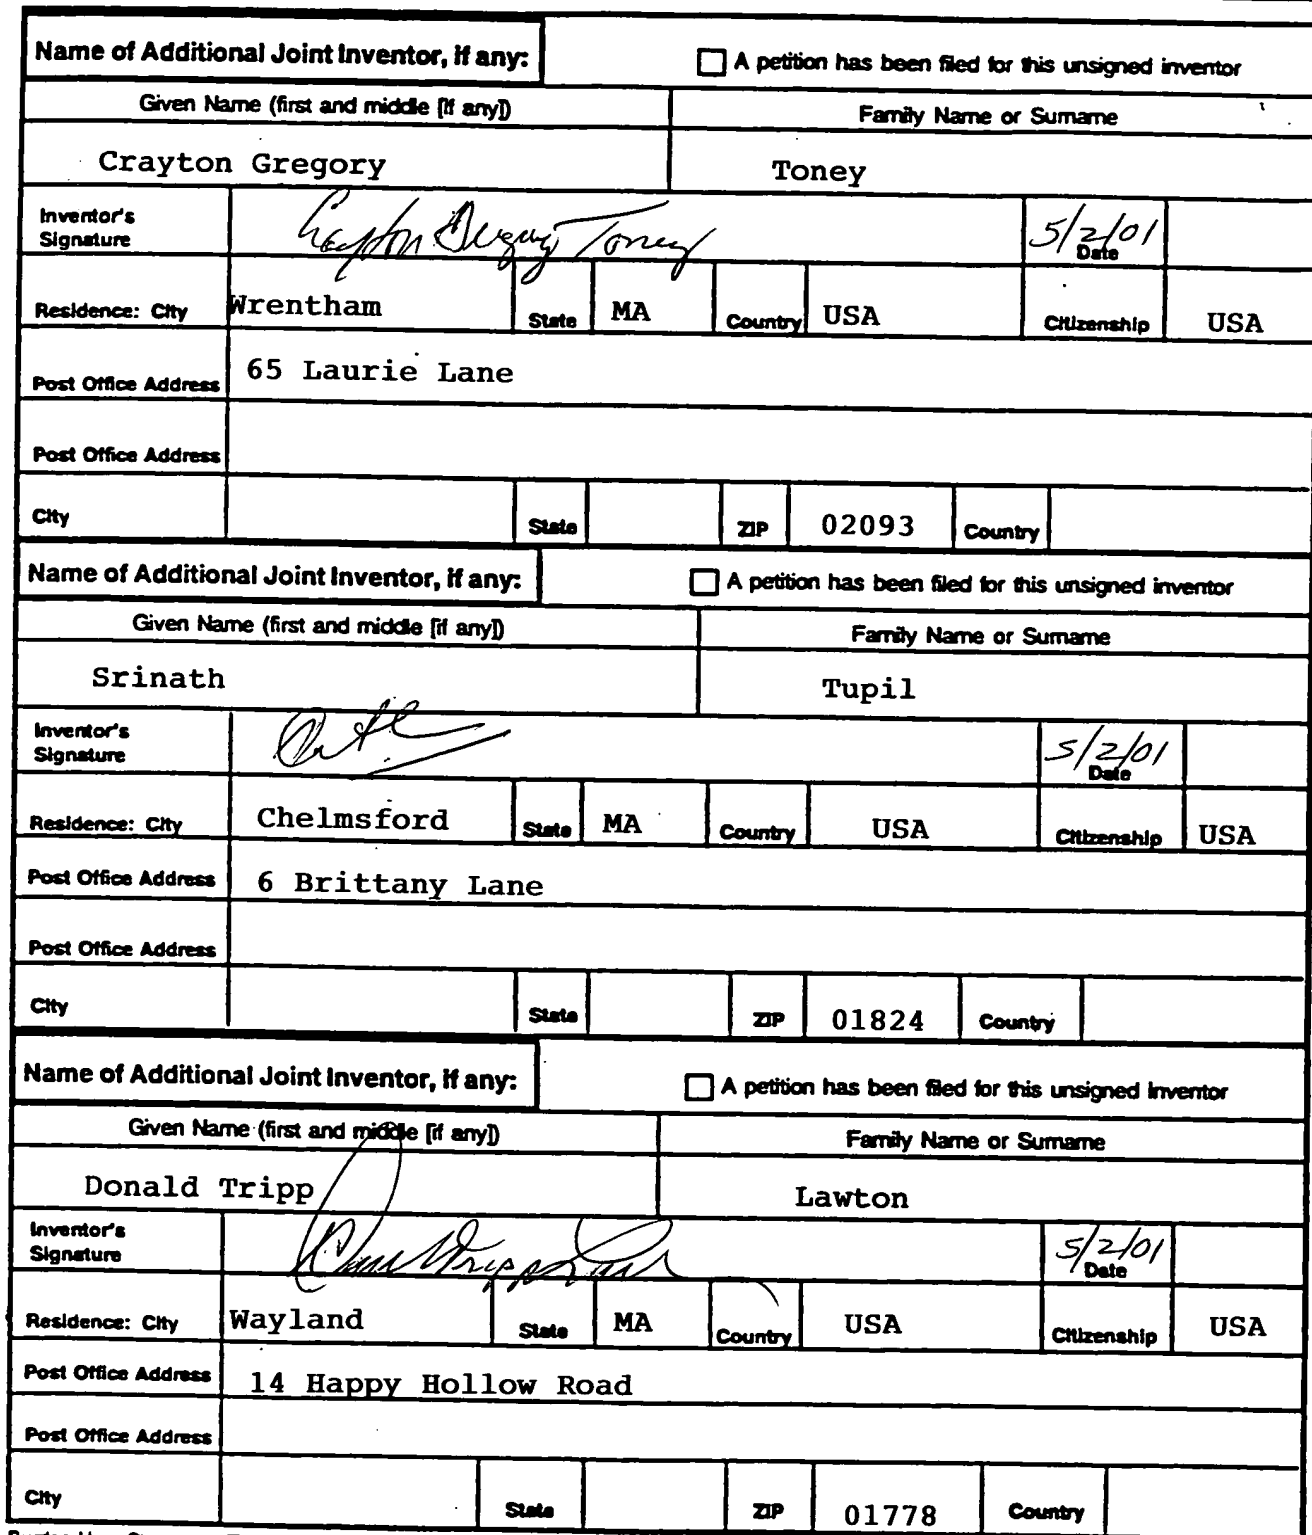 Name of Additional Joint Inventor, if any: A petition has been filed for this unsigned inventor
Given Name (first and middle [if any]) Family Name or Surname
Crayton Gregory Toney
Inventor's Signature Crayton Gregory Toney 5/2/01 Date
Residence: City Wrentham State MA Country USA Citizenship USA
Post Office Address 65 Laurie Lane
Post Office Address
City State ZIP 02093 Country
Name of Additional Joint Inventor, if any: A petition has been filed for this unsigned inventor
Given Name (first and middle [if any]) Family Name or Surname
Srinath Tupil
Inventor's Signature 5/2/01 Date
Residence: City Chelmsford State MA Country USA Citizenship USA
Post Office Address 6 Brittany Lane
Post Office Address
City State ZIP 01824 Country
Name of Additional Joint Inventor, if any: A petition has been filed for this unsigned inventor
Given Name (first and middle [if any]) Family Name or Surname
Donald Tripp Lawton
Inventor's Signature 5/2/01 Date
Residence: City Wayland State MA Country USA Citizenship USA
Post Office Address 14 Happy Hollow Road
Post Office Address
City State ZIP 01778 Country